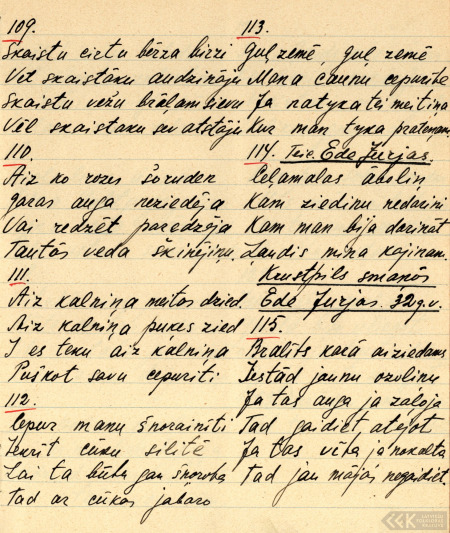 109.
Skaistu cirtu bērza birzi
Vēl skaistāku audzināju
Skaistu vežu brāļam sievu
Vēl skaistaku sev atstāju
110.
Aiz ko rozes šoruden
garas auga neziedēja
Vai redzēt paredzēja
Tautās veda škinējiņu.
111.
Aiz kalniņa meitas dzied.
Aiz kalniņa pukes zied
I es teku aiz kalniņa
Puškot savu cepuriti
112.
Cepur manu šnorainiti
Iekrit cūku silitē
Lai ta būtu gan šņorota
Tad ar cūkas jabaro
113.
Guļ zemē, guļ zemē
Mana cauņu cepurite
Ja natyka tei meitiņa
Kur man tyka prateņam.
114. Teic. Ede Jurjas.
Ceļamalas abolin
Kam ziediņu nedarini
Kam man bija darināt
Laudis mina kajinam.
Kreustpils smaņōs
Ede Jurjas. 32 g. v.
115.
Bralīts karā aiziedams
Iestād jaunu ozoliņu
Ja tas auga ja zaļoja
Tad gaidiet atejot
Ja tas vēta ja nokalta
Tad jau mājās negaidiet.